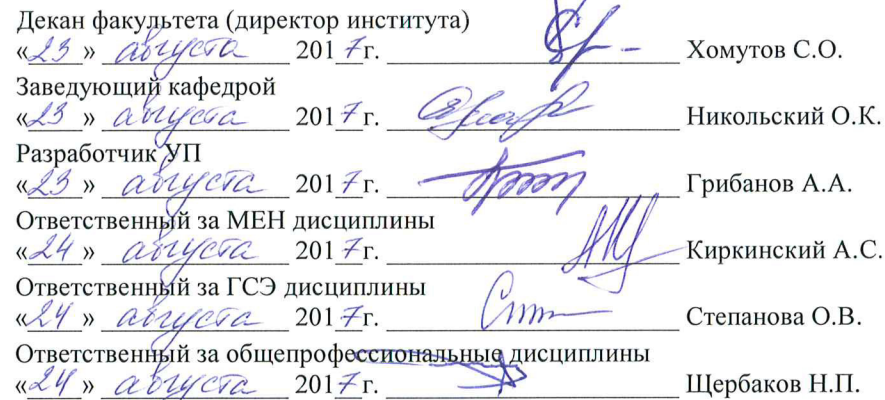 Декан факультета (директор института)
«23» августа 2017г. Хомутов С.О.
Заведующий кафедрой
«23» августа 2017г. Никольский О.К.
Разработчик УП
«23» августа 2017г. Грибанов А.А.
Ответственный за МЕН дисциплины
«24» августа 2017г. Киркинский А.С.
Ответственный за ГСЭ дисциплины
«24» августа 2017г. Степанова О.В.
Ответственный за общепрофессиональные дисциплины
«24» августа 2017г. Щербаков Н.П.